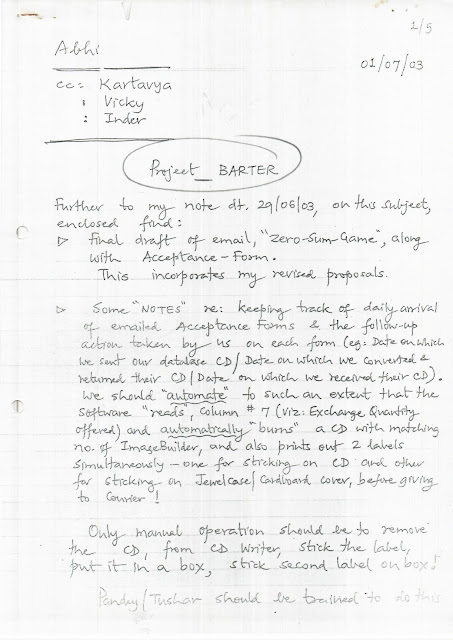 1/5
Abhi
01/07/03
cc: Kartavya
: Vicky
: Inder
Project_BARTER
Further to my note dt. 29/06/03, on this subject,
enclosed find:
▷ Final draft of email, "Zero-Sum-Game", along
with Acceptance-Form.
This incorporates my revised proposals.
▷ Some "NOTES" re: keeping track of daily arrival
of emailed Acceptance Forms & the follow-up
action taken by us on each form (eg: Date on which
we sent our database CD/Date on which we converted &
returned their CD/Date on which we received their CD).
We should "automate" to such an extent that the
software "reads", column # 7 (viz: Exchange Quantity
offered) and automatically "burns" a CD with matching
no. of ImageBuilder, and also prints out 2 labels
simultaneously - one for sticking on CD and other
for sticking on Jewel Case/Cardboard cover, before giving
to Courier!
Only manual operation should be to remove
the CD, from CD Writer, stick the label,
put it in a box, stick second label on box!
Pandey/Tushar should be trained to do this